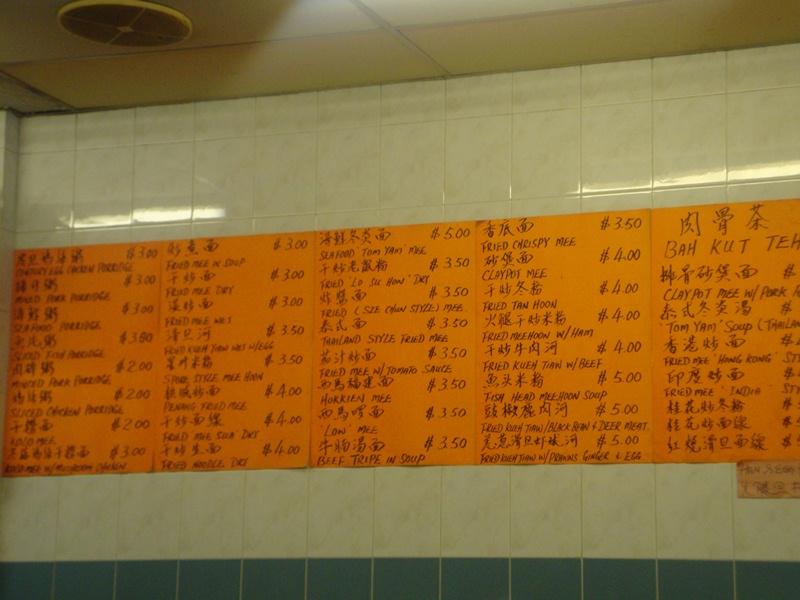 $3.00
CENTURY EGG CHICKEN PORRIDGE
$3.00
MIXED PORK PORRIDGE
海鲜粥 $3.00
SEAFOOD PORRIDGE
$3.50
SLICED FISH PORRIDGE
$2.00
MINCED PORK PORRIDGE
$2.00
SLICED CHICKEN PORRIDGE
干捞面 $2.00
KOLO MEE
$3.00
KOLO MEE W/MUSHROOM CHICKEN
炒煮面 $3.00
FRIED MEE W SOUP
干炒面 $3.00
FRIED MEE DRY
湿炒面 $3.00
FRIED MEE WET
滑旦河 $3.50
FRIED KUEH TIAW WET W/EGG
星州米粉 $3.50
S'PORE STYLE MEE HOON
槟城炒面 $4.00
PENANG FRIED MEE
干炒面線 $4.00
FRIED MEE SUA DRY
干炒生面 $4.00
FRIED NOODLE DRY
海鲜冬炎面 $5.00
SEAFOOD "TOM YAM" MEE
干炒老鼠粉 $3.50
FRIED 'LO SU HOON' DRY
炸醬面 $3.50
FRIED (SZE CHUN STYLE) MEE
泰式面 $3.50
THAILAND STYLE FRIED MEE
茄汁炒面 $3.50
FRIED MEE W/TOMATO SAUCE
西馬福建面 $3.50
HOKKIEN MEE
西馬啰面 $3.50
'LOW' MEE
牛肚湯面 $3.50
BEEF TRIPE IN SOUP
香底面 $3.50
FRIED CHRISPY MEE
砂煲面 $4.00
CLAYPOT MEE
干炒冬粉 $4.00
FRIED TAN HOON
火腿干炒米粉 $4.00
FRIED MEEHOON W/HAM
干炒牛肉河 $4.00
FRIED KUEH TIAW W/BEEF
魚头米粉 $5.00
FISH HEAD MEEHOON SOUP
豉椒鹿肉河 $5.00
FRIED KUEH TIAW/BLACK BEAN & DEER MEAT
姜葱滑旦虾球河 $5.00
FRIED KUEH TIAW W/PRAWNS GINGER & EGG
肉骨茶
BAH KUT TEH
排骨砂煲面 $
CLAYPOT MEE W/PORK
泰式冬炎湯 $
'TOM YAM' SOUP (THAILAN
香港炒面 $
FRIED MEE 'HONG KONG' STY
印度炒面 $
FRIED MEE 'INDIA' ST
桂花炒冬粉 $
桂花炒面線 $
红烧滑旦面線 $